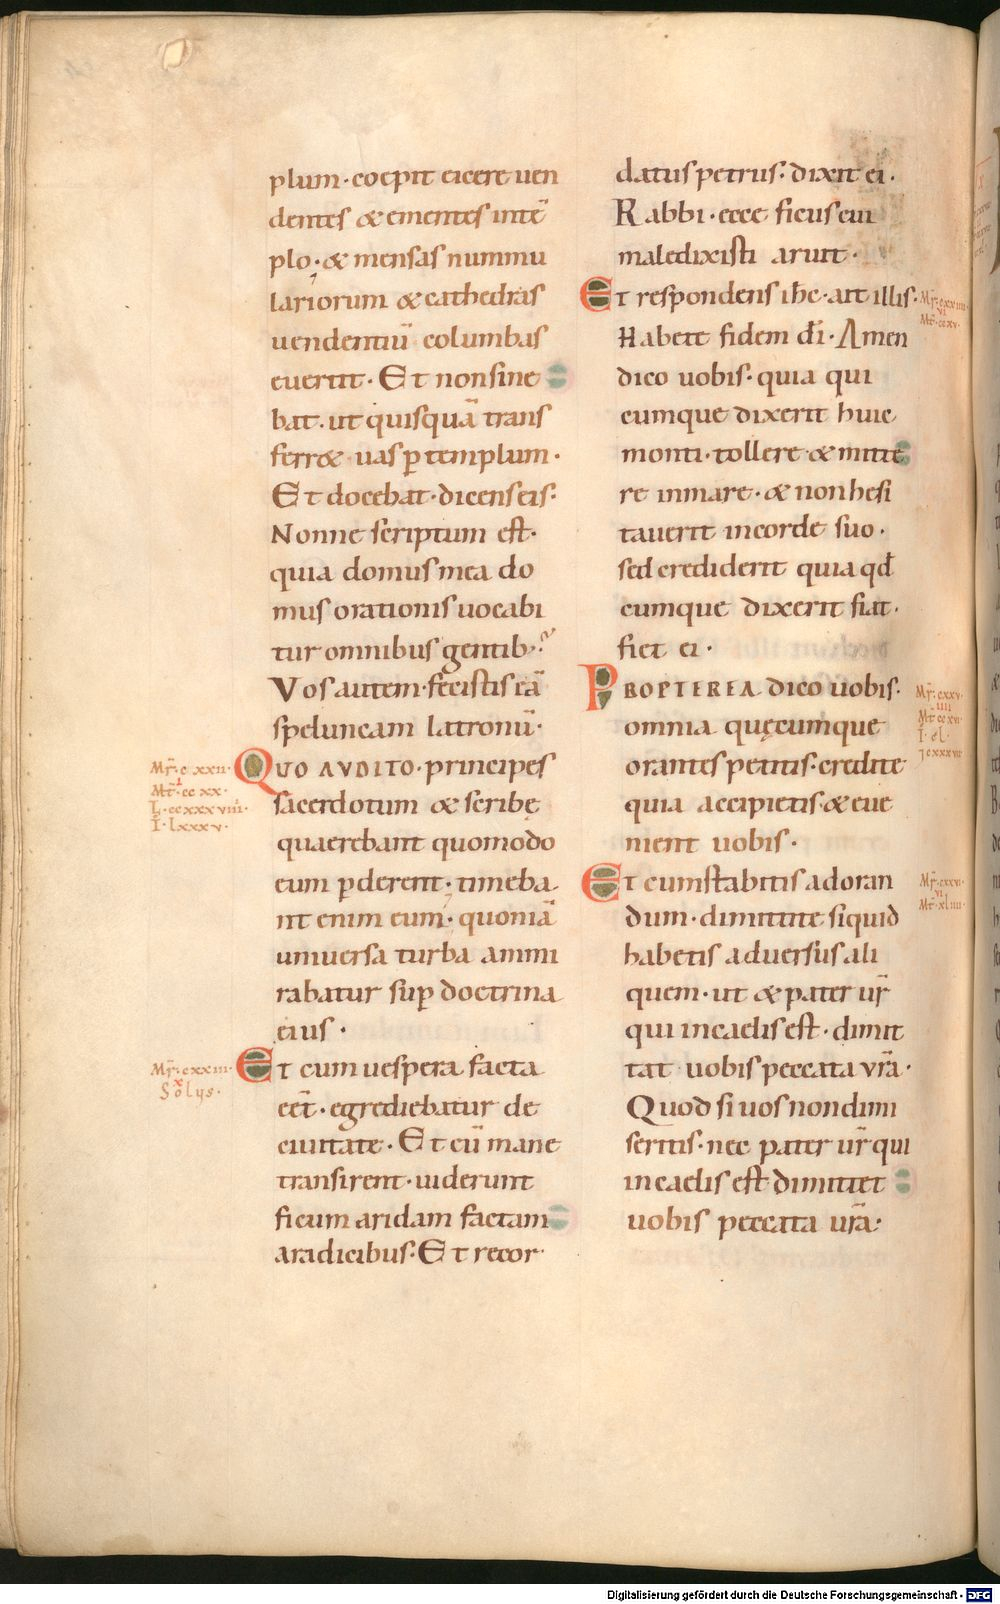 plum·coepit eicere uen
dentes & ementes intē
plo·& mensas nummu
lariorum & cathedras
uendentiū columbas
euertit· Et non sine
bat·ut quisquā trans
ferr& uas p templum·
Et docebat·dicens eis:
Nonne scriptum est·
quia domus mea do
mus orationis uocabi
tur omnibus gentib;?
Vos autem fecistis eā
speluncam latronū·
Mr̄·c xxii·
Mt̄·cc xx·
L·cc xxx viii·
I·lxxx v·
QUO AUDITO·principes
sacerdotum & scribę
quaerebant quomodo
eum pderent·timeba
nt enim eum·quoniā
uniuersa turba ammi
rabatur sup doctrina
eius·
Mr̄·cxxiii·
x
Solus·
Et cum uespera facta
eēt·egrediebatur de
ciuitate· Et cū mane
transirent·uiderunt
ficum aridam factam
aradicibus· Et recor
datus petrus·dixit ei·
Rabbi·ecce ficus cui
maledixisti aruit·
Et respondens ihc·ait illis·
Mr̄·cxxiiii·
vi
Mt̄·ccxv·
Habete fidem dī·Amen
dico uobis·quia qui
cumque dixerit huic
monti·tollere & mitte
re in mare·& non hesi
tauerit in corde suo·
sed crediderit quia qđ
cumque dixerit fiat·
fiet ei·
PROPTEREA dico uobis·
Mr̄·cxxv·
iiii
Mt̄·ccxvi·
omnia quęcumque
orantes petitis·credite
quia accipietis·& eue
nient uobis·
Et cum stabitis ad oran
Mr̄·cxxvi·
vi
Mt̄·xliiii·
dum·dimittite siquid
habetis aduersus ali
quem·ut & pater ur̄
qui in caelis est·dimit
tat uobis peccata vrā·
Quod si uos non dimi
seritis·nec pater ur̄ qui
in caelis est dimittet
uobis peccata urā:
Digitalisierung gefördert durch die Deutsche Forschungsgemeinschaft - DFG